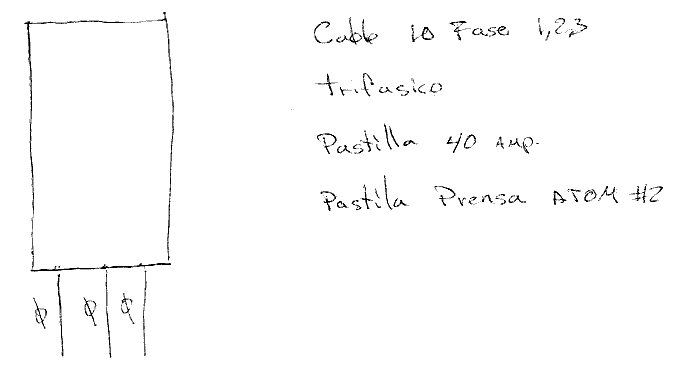 Cable 10 Fase 1,2,3
trifasico
Pastilla 40 Amp.
Pastila Prensa ATOM #2
ϕ ϕ ϕ